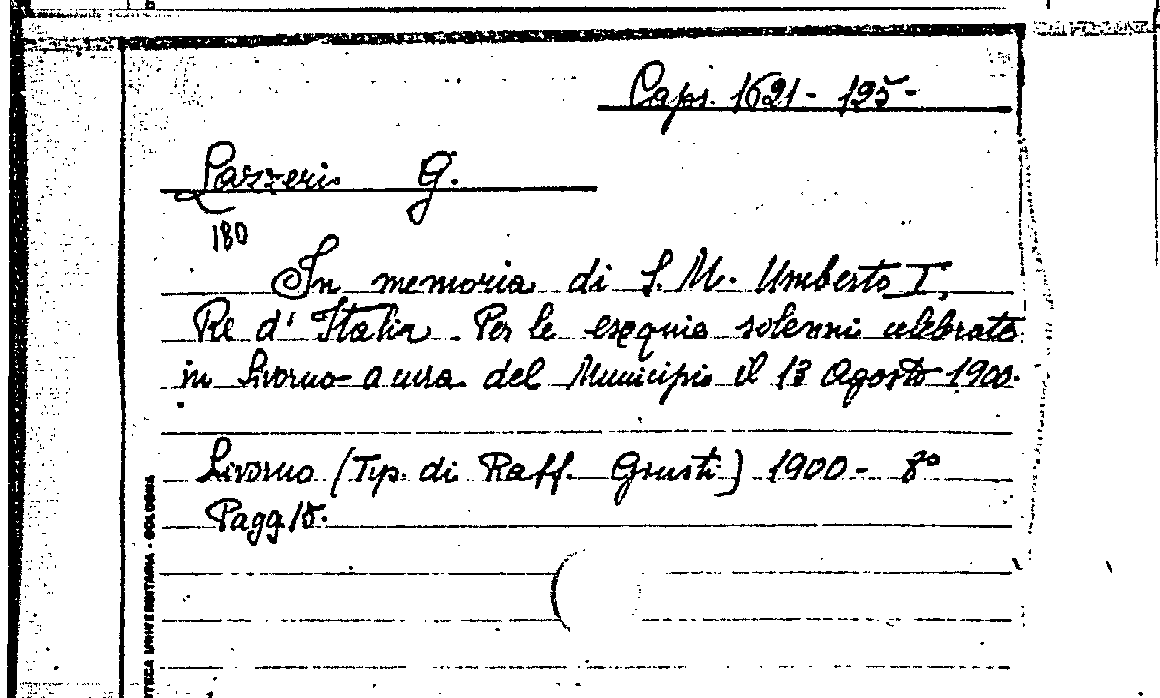 Caps. 1621 - 195 -
Lazzeri G.
180
In memoria di S. M. Umberto I,
Re d' Italia. Per le esequie solenni celebrate
in Livorno a cura del Municipio il 13 Agosto 1900.
Livorno (Tip. di Raff. Giusti) 1900 - 8°
Pagg. 15.
OTECA UNIVERSITARIA - BOLOGNA